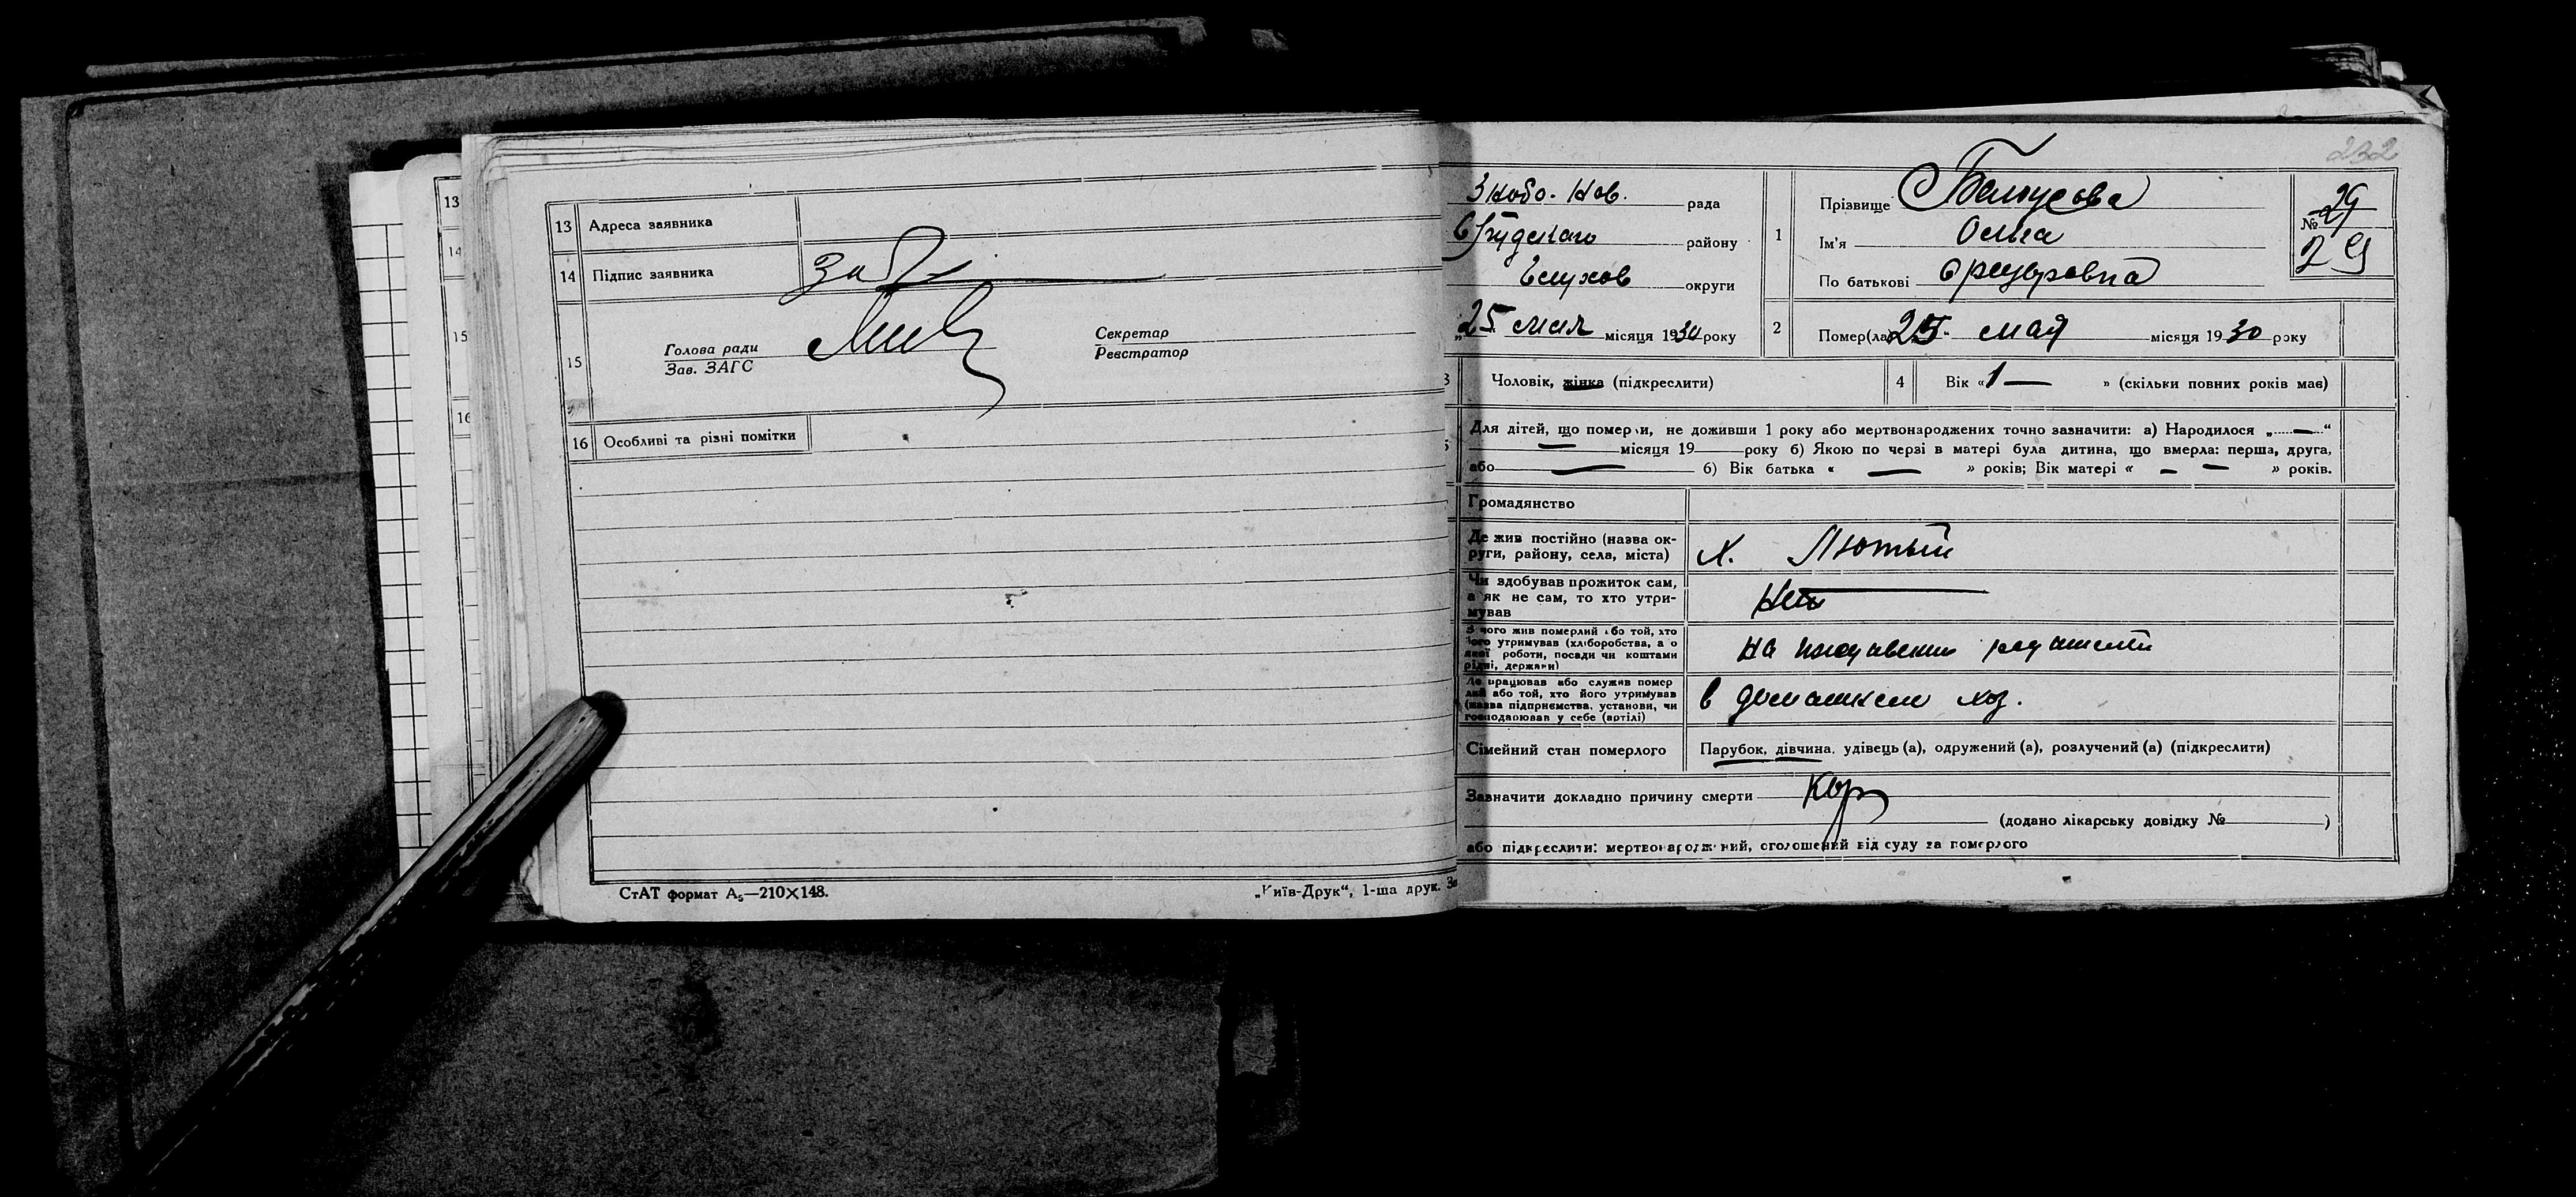 13
14
15
16
13 Адреса заявника
14 Підпис заявника
15 Голова ради Секретар
Зав. ЗАГС Реєстратор
16 Особливі та різні помітки
СтАТ формат А₅—210×148. „Київ-Друк“, 1-ша друк. За
232
Зноб. Нов. рада
району
Глухов округи
„25 мая місяця 1930 року
1 Прізвище Белоусова
Ім'я Ольга
По батькові
№ 29
29
2 Помер(ла) 25 мая місяця 1930 року
3 Чоловік, жінка (підкреслити) 4 Вік «1 — » (скільки повних років мав)
5 Для дітей, що померли, не доживши 1 року або мертвонароджених точно зазначити: а) Народилося „—“
— місяця 19 року б) Якою по черзі в матері була дитина, що вмерла: перша, друга,
або — б) Вік батька « — » років; Вік матері « — — » років.
Громадянство
Де жив постійно (назва ок-
руги, району, села, міста) х. Лютый
Чи здобував прожиток сам,
а як не сам, то хто утри-
мував Нет
З чого жив померлий або той, хто
його утримував (хліборобства, а о
якої роботи, посади чи коштами
рідні, держави) на иждивении родителей
Де працював або служив помер
лий або той, хто його утримував
(назва підприємства, установи, чи
господарював у себе (артілі) в домашнем хоз.
Сімейний стан померлого Парубок, дівчина, удівець (а), одружений (а), розлучений (а) (підкреслити)
Зазначити докладно причину смерти Корь
(додано лікарську довідку № )
або підкреслити: мертвонароджений, оголошений від суду за померлого